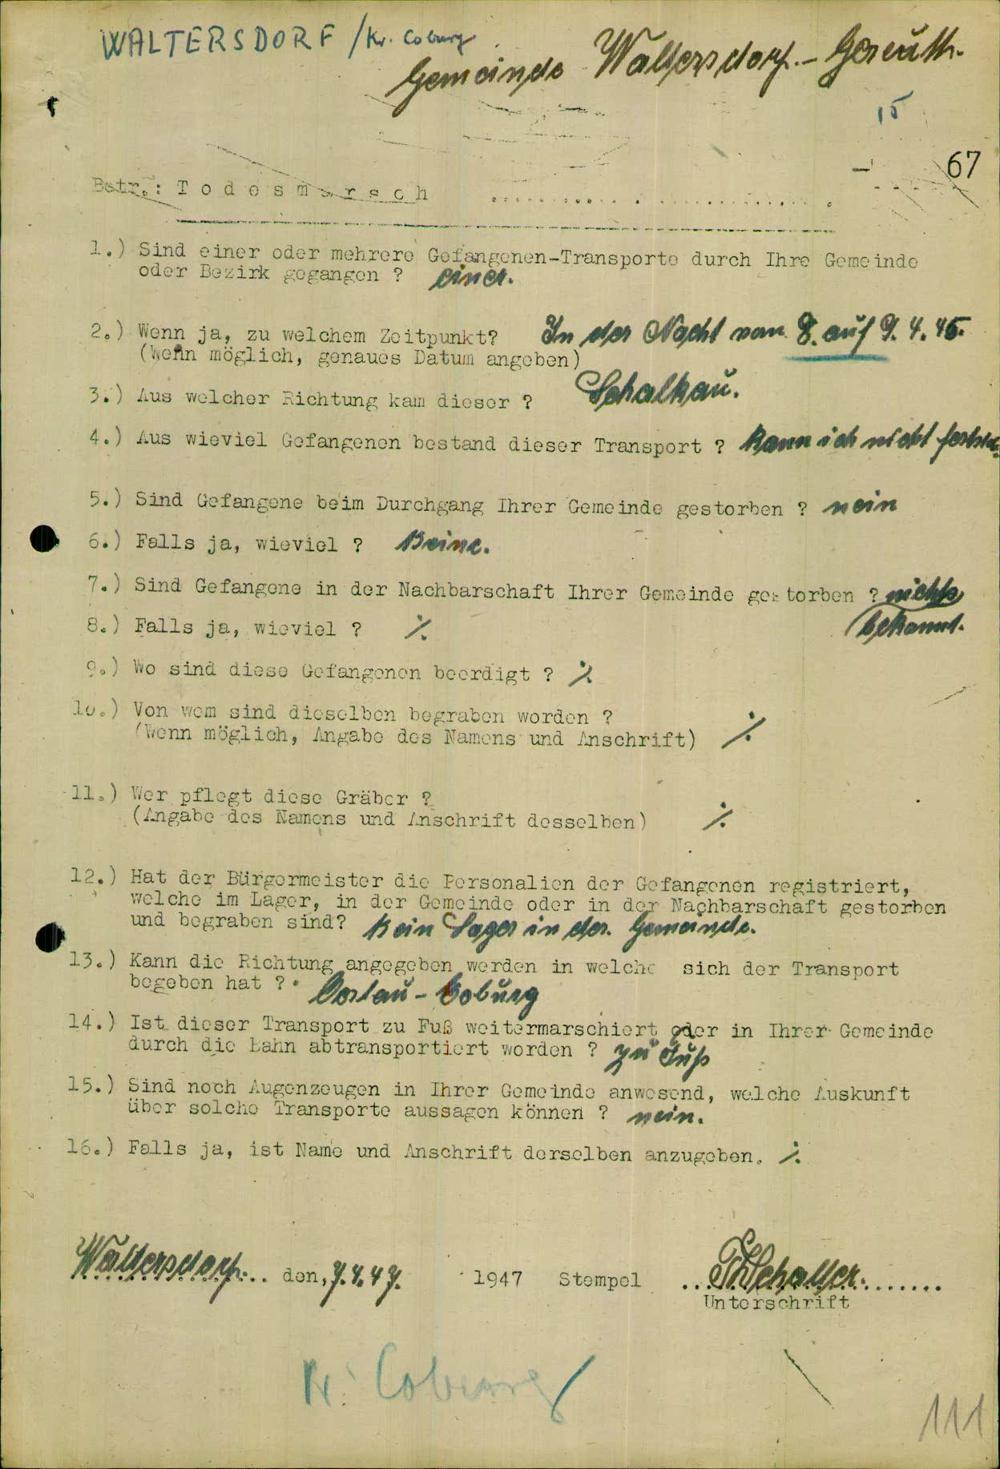 WALTERSDORF /Kr. Coburg
Gemeinde Waltersdorf.- Gereuth.
15
67
Betr.: Todesmarsch
1.) Sind einer oder mehrere Gefangenen-Transporte durch Ihre Gemeinde
oder Bezirk gegangen ? einer.
2.) Wenn ja, zu welchem Zeitpunkt? In der Nacht vom 8. auf 9.4.45.
(Wenn möglich, genaues Datum angeben)
3.) Aus welcher Richtung kam dieser ? Schalkau.
4.) Aus wieviel Gefangenen bestand dieser Transport ? Kann ich nicht
5.) Sind Gefangene beim Durchgang Ihrer Gemeinde gestorben ? nein
6.) Falls ja, wieviel ? Keine.
7.) Sind Gefangene in der Nachbarschaft Ihrer Gemeinde gestorben ? nichts
8.) Falls ja, wieviel ? ∕. bekannt.
9.) Wo sind diese Gefangenen beerdigt ? ∕.
10.) Von wem sind dieselben begraben worden ?
(Wenn möglich, Angabe des Namens und Anschrift) ∕.
11.) Wer pflegt diese Gräber ?
(Angabe des Namens und Anschrift desselben) ∕.
12.) Hat der Bürgermeister die Personalien der Gefangenen registriert,
welche im Lager, in der Gemeinde oder in der Nachbarschaft gestorben
und begraben sind? Kein Lager in der Gemeinde.
13.) Kann die Richtung angegeben werden in welche sich der Transport
begeben hat ? - Coburg
14.) Ist dieser Transport zu Fuß weitermarschiert oder in Ihrer Gemeinde
durch die Bahn abtransportiert worden ? zu Fuß
15.) Sind noch Augenzeugen in Ihrer Gemeinde anwesend, welche Auskunft
über solche Transporte aussagen können ? nein.
16.) Falls ja, ist Name und Anschrift derselben anzugeben. ∕.
Waltersdorf... den, 7.4.47. 1947 Stempel
Unterschrift
Kr. Coburg
111